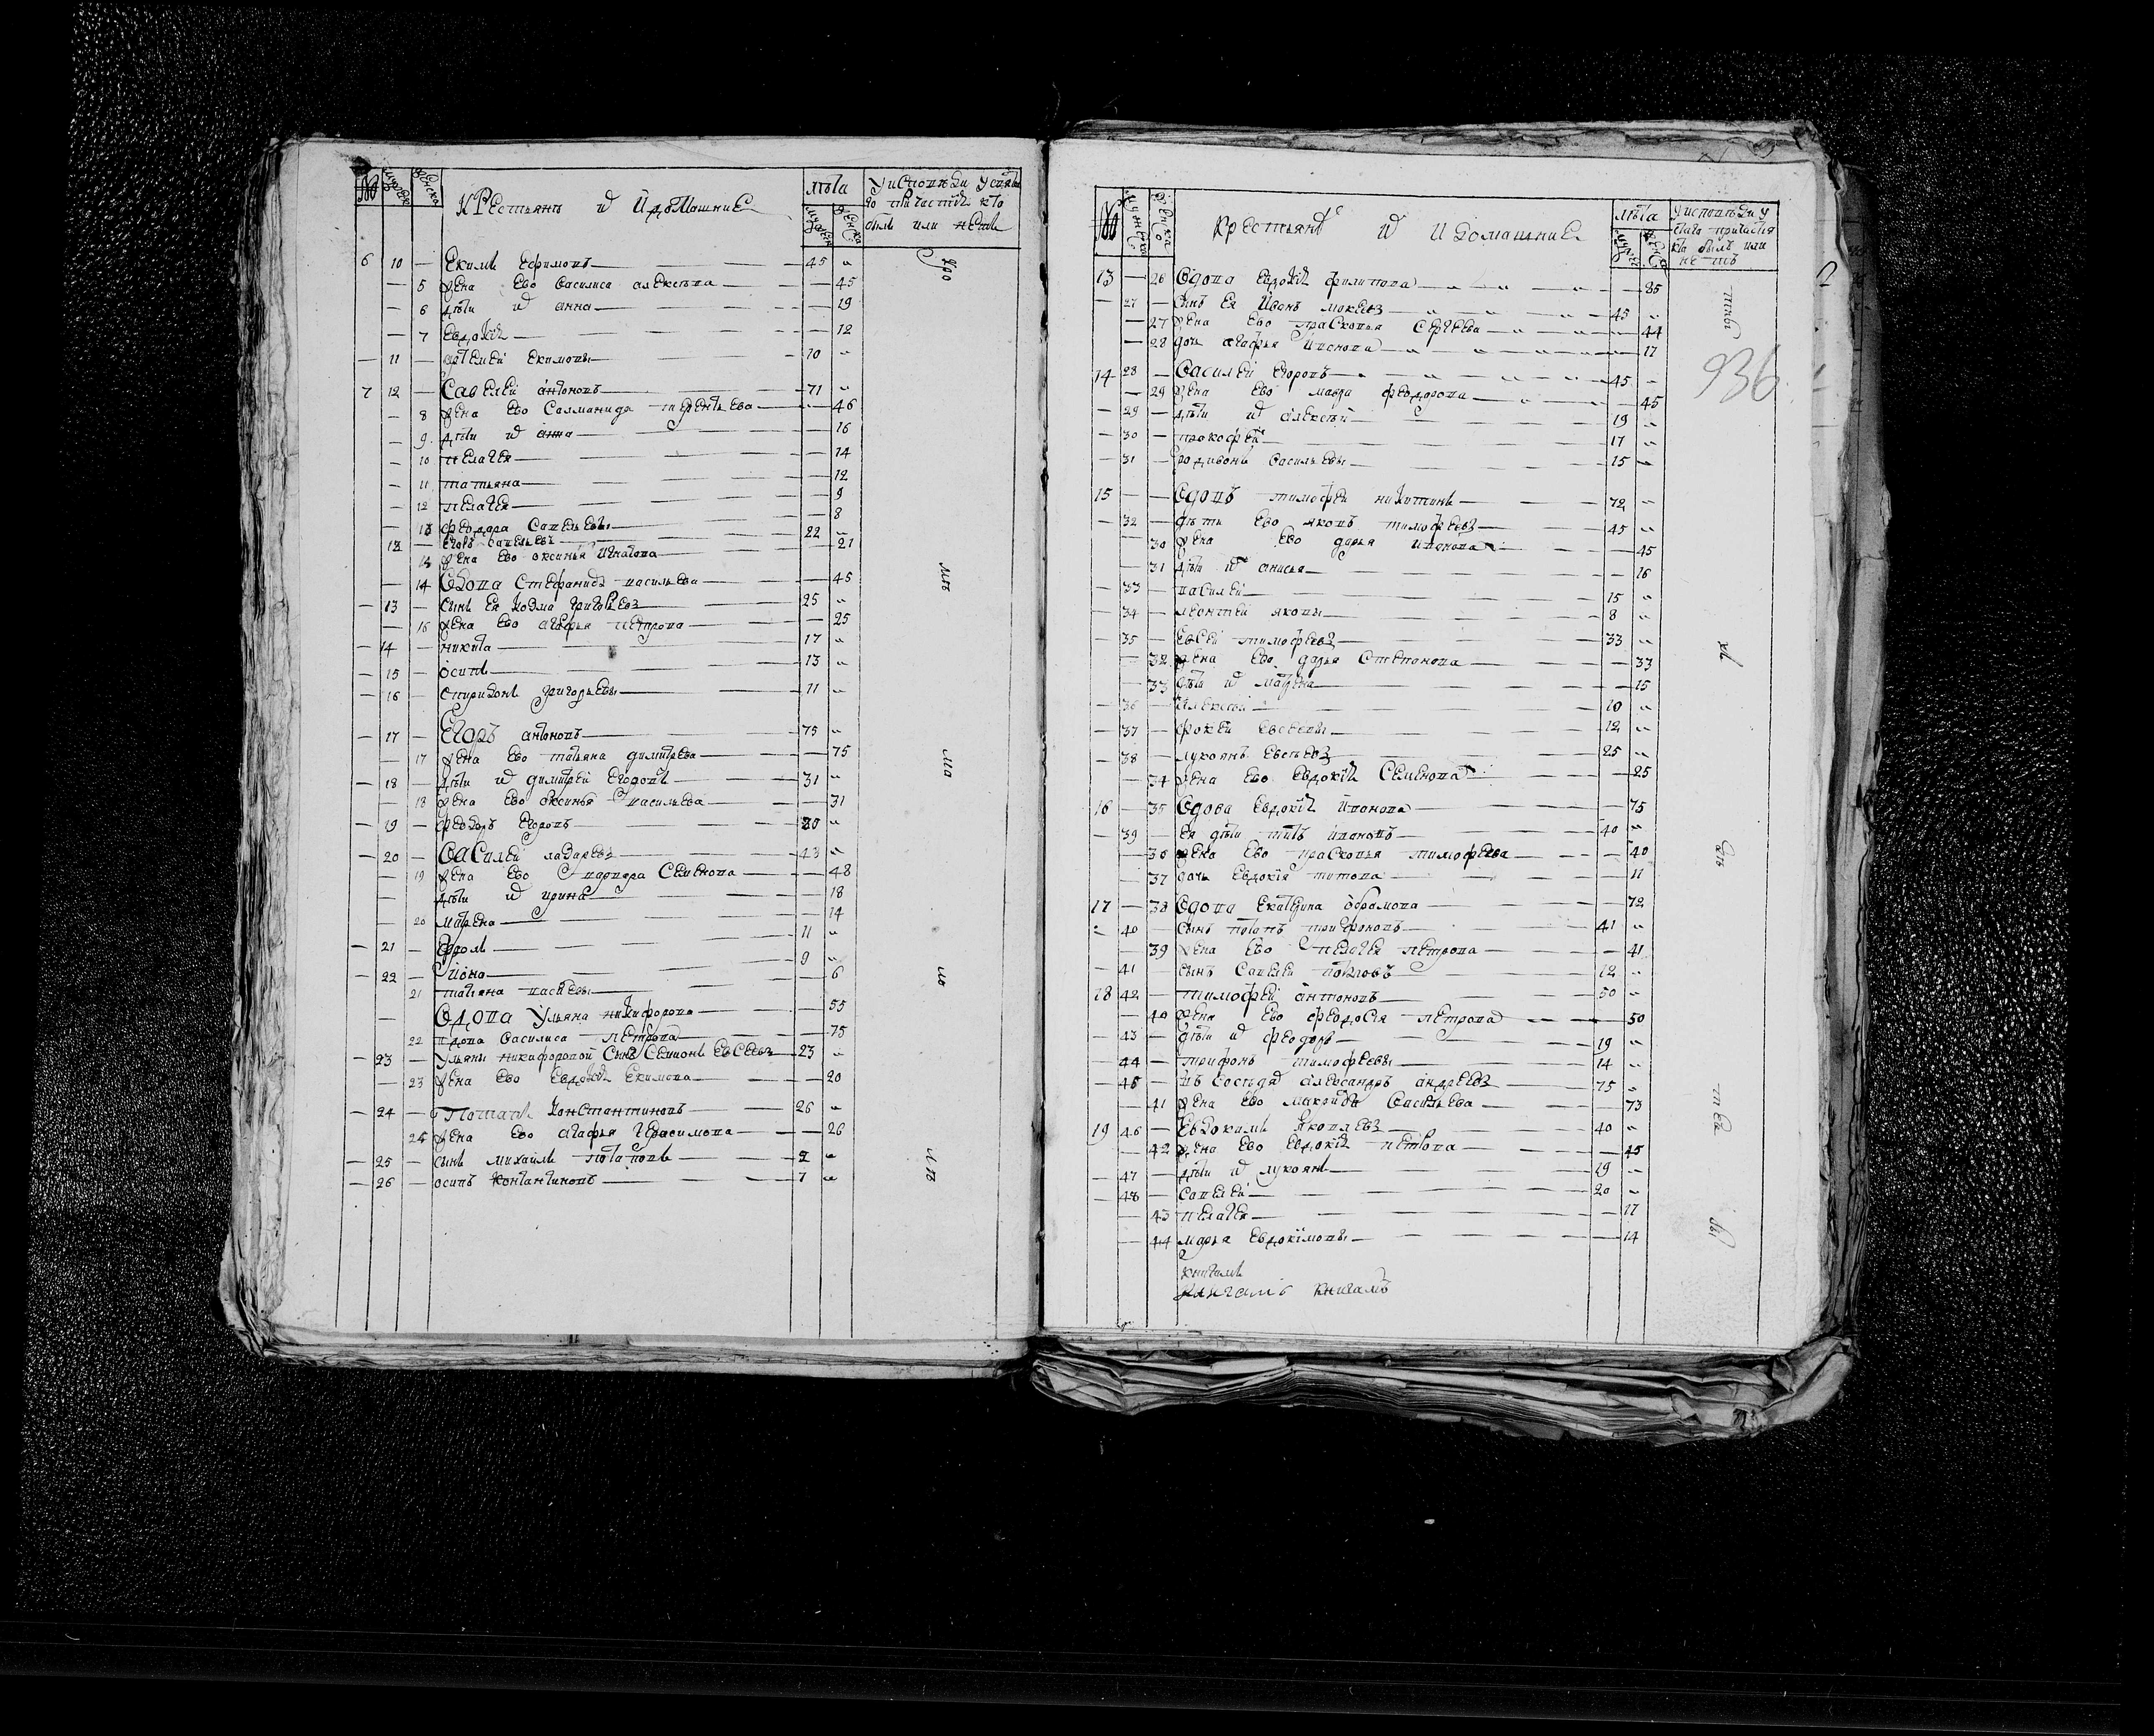 № мужеска женска Крестьянъ и ихъ домашние лѣта У исповѣди у святаго причастія кто
мужеск женска былъ или нетъ
6 10 — Екимъ Ефимовъ 45 „
— 5 жена Ево василиса алексѣева — 45
— 6 дѣти их анна — 19
— 7 Евдокія — 12
— 11 — артемей Екимовы 10 „
7 12 — Савелей антоновъ 71 „
— 8 жена Ево Саламанида терентьева — 46
— 9 дѣти их анна — 16
— 10 пелагея — 14
— 11 татьяна — 12
— 12 пелагея — 9
— 13 феодора Савельевы — 8
12 — Егоръ савельевъ 22 „
жена Ево оксинья Игнатова — 21
— 14 Вдова Стефанида васильева — 45
— 13 — сынъ Ея козма григорьевъ 25 „
— 16 жена Ево агафья петрова — 25
— 14 — никита 17 „
— 15 — осипъ 13 „
— 16 — спиридонъ григорьевы 11 „
— 17 — Егоръ антоновъ 75 „
— 17 жена Ево татьяна димитрева — 75
— 18 — дѣти их димитрей Егоровъ 31 „
— 18 жена Ево оксинья васильева — 31
— 19 — феодоръ Егоровъ 20 „
— 20 — василей лазаревъ 43 „
— 19 жена Ево варвара Семенова — 48
— дѣти их ирина — 18
— 20 матрена — 14
— 21 — 11 „
— 22 — иона 9 „
21 татьяна васильевы — 6
— Вдова Ульяна никифорова — 55
22 вдова василиса петрова — 75
— 23 — Ульяны никифоровой Сынъ Семионъ Евсеевъ 23 „
— 23 жена Ево Евдокія Екимова — 20
— 24 — Потапъ константиновъ 26 „
24 жена Ево агафья герасимова — 26
— 25 — сынъ михайлъ потаповъ 2 „
— 26 — осипъ константиновъ 7 „
№ Крестьянъ и их домашние лѣта У исповѣди у
святаго причастия
кто былъ или
нетъ
2
936
13 — 26 Вдова Евдокія филипова — 85
27 — сынъ Ея Иванъ мокеевъ 45 „
— 27 жена Ево прасковья Сергеева — 44
— 28 дочь агафья Иванова — 17
14 28 — Василей Егоровъ 45 „
— 29 жена Ево мавра феодорова — 45
— 29 — дѣти их алексѣй 19 „
— 30 — прокофей 17 „
— 31 — родивонъ васильевы 15 „
15 — — Вдовъ тимофей никитинъ 72 „
— 32 — дѣти Ево яковъ тимофеевъ 45 „
— 30 жена Ево дарья иванова — 45
— 31 дѣти их анисья — 16
— 33 — василей 15 „
— 34 — леонтей яковы 8 „
— 35 — Евсей тимофеевъ 33 „
— 32 жена Ево дарья Степанова — 33
— 33 дѣти их матрена — 15
— 36 — алексѣй 10 „
— 37 — фокей евсеевы 12 „
— 38 — лукоянъ Евсеевъ 25 „
— 34 жена Ево Евдокія Семенова — 25
16 — 35 Вдова Евдокія Иванова — 75
— 39 — Ея дѣти титъ ивановъ 40 „
— 36 жена Ево прасковья тимофеева — 40
— 37 дочь Евдокія титова — 11
17 — 38 Вдова Екатерина абрамова — 72
— 40 — сынъ потапъ трифоновъ 41 „
— 39 жена Ево пелагея петрова — 41
— 41 — сынъ Савелей 12 „
18 42 — тимофей антоновъ 50 „
— 40 жена Ево феодосія петрова — 50
— 43 — дѣти их феодоръ 19 „
— 44 — трифонъ тимофеевы 14 „
— 45 — александръ андреевъ 75 „
— 41 жена Ево васильева — 73
19 46 — Евдокимъ Яковлевъ 40 „
— 42 жена Ево Евдокія петрова — 45
— 47 — дѣти их лукоянъ 19 „
— 48 — Савелей 20 „
— 43 пелагея — 17
— 44 марья Евдокімовы — 14
книгамъ
книгамъ книгамъ